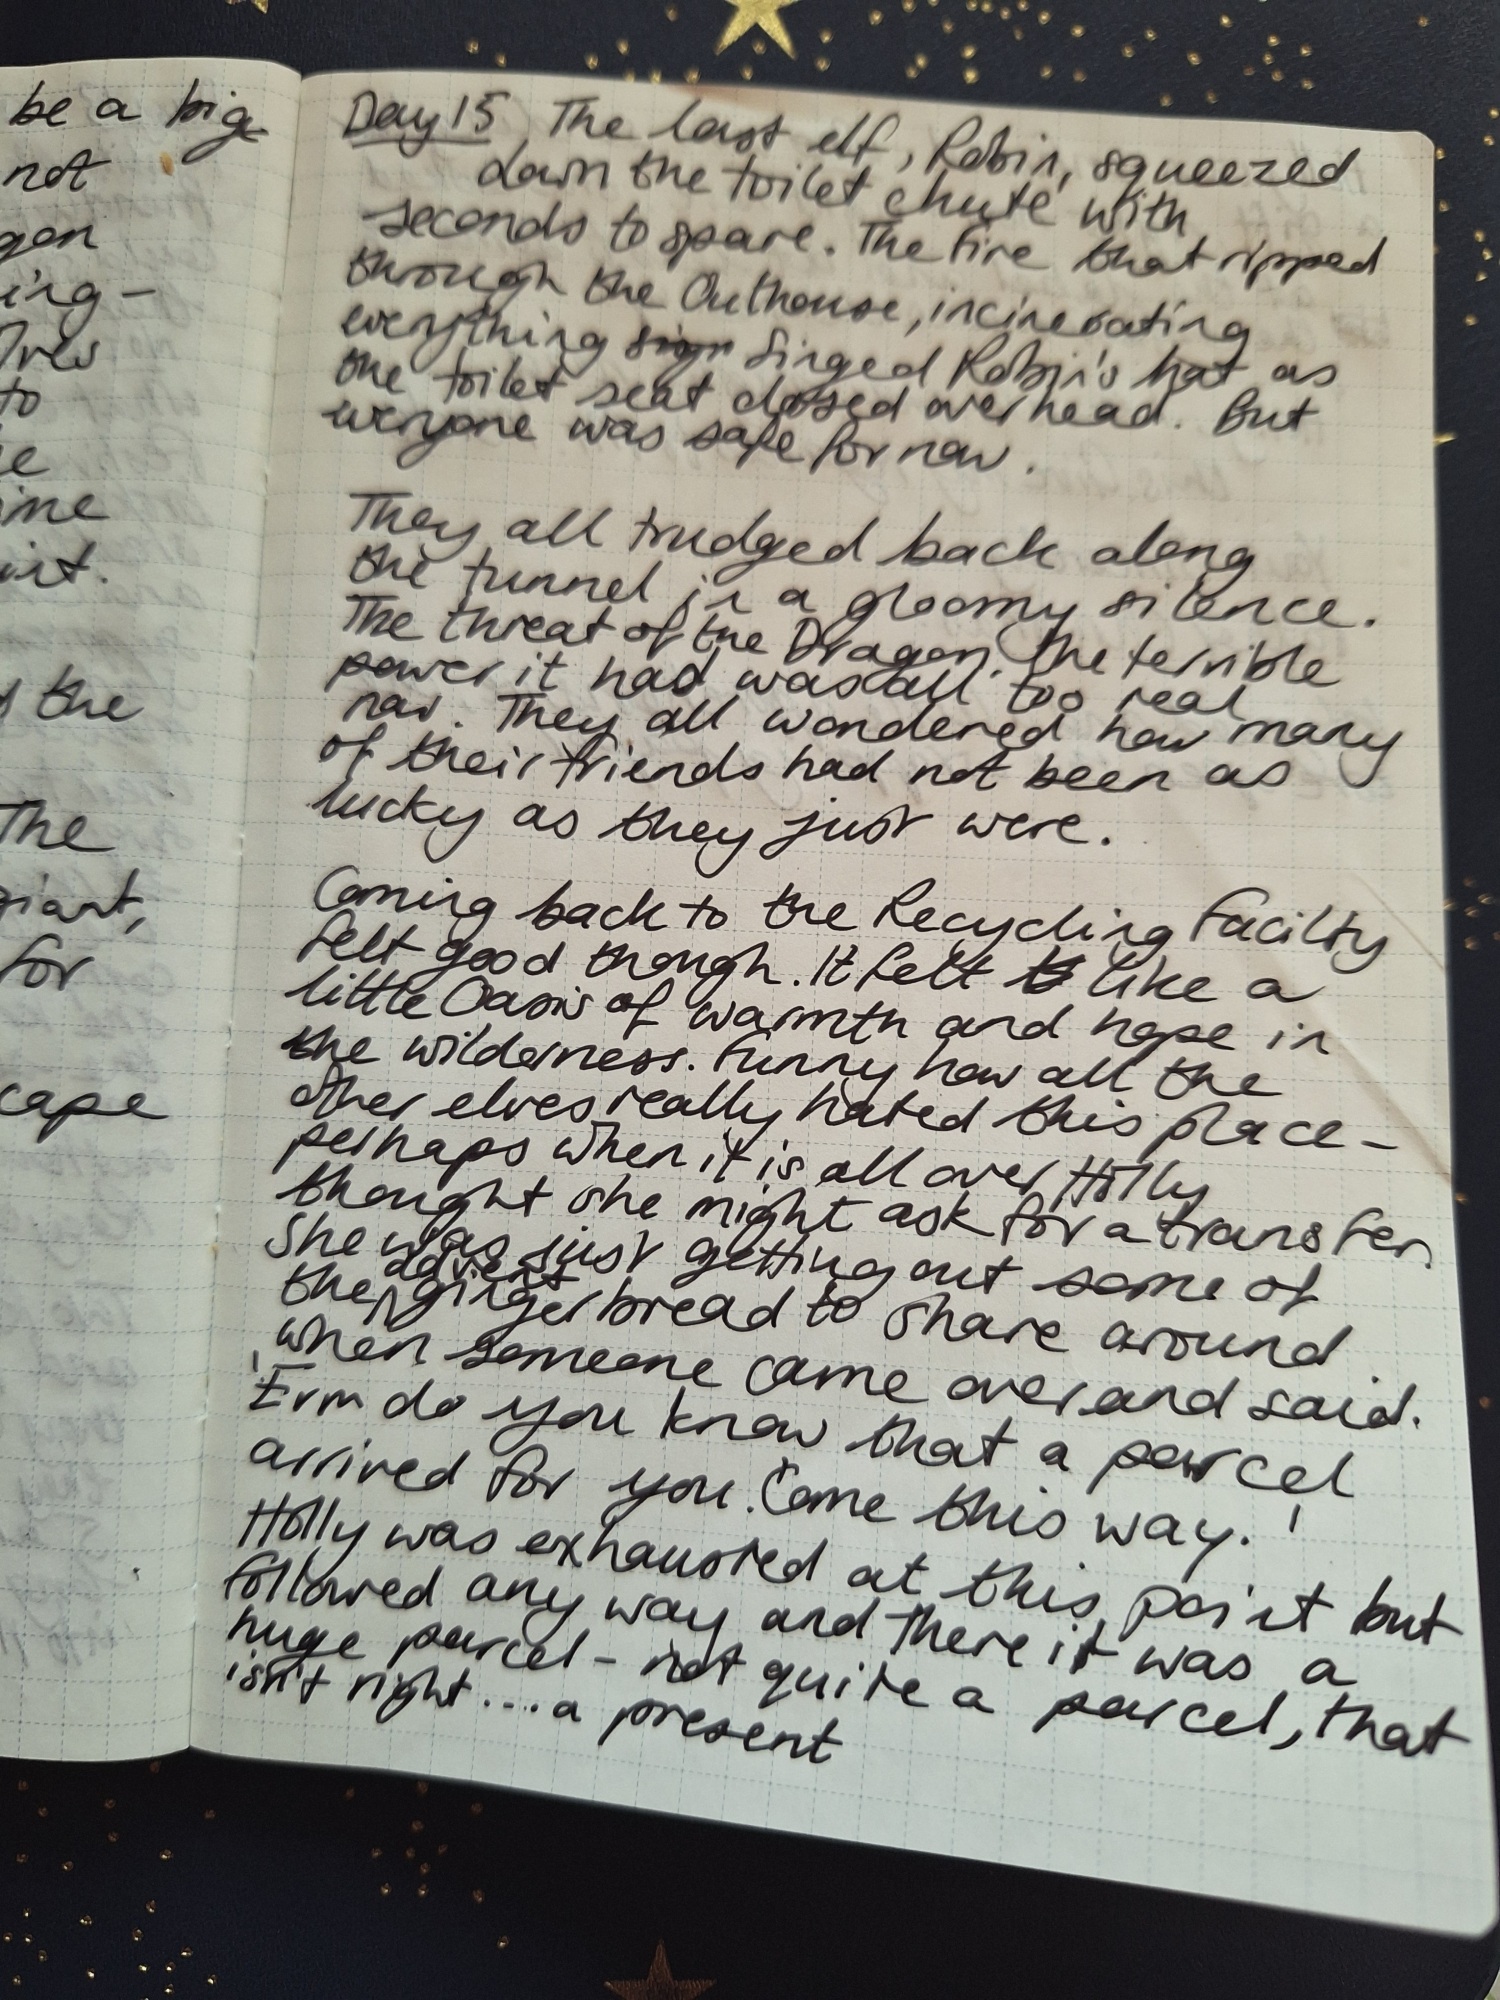 be a big
not
gon
ing -
to
ine
the
The
giant,
for
cape
Day 15 The last elf, Robin, squeezed
down the toilet chute with
seconds to spare. The fire that ripped
through the Outhouse, incinerating
everything singed Robin's hat as
the toilet seat closed overhead. But
everyone was safe for now.
They all trudged back along
the tunnel in a gloomy silence.
The threat of the Dragon. The terrible
power it had was all too real
now. They all wondered how many
of their friends had not been as
lucky as they just were.
Coming back to the Recycling Facilty
felt good though. It felt like a
little Oasis of warmth and hope in
the wilderness. Funny how all the
other elves really hated this place -
perhaps when it is all over Holly
thought she might ask for a transfer.
She was just getting out some of
the advent gingerbread to share around
when someone came over and said.
'Erm do you know that a parcel
arrived for you. Come this way.'
Holly was exhausted at this point but
followed any way and there it was a
huge parcel - not quite a parcel, that
isn't right.... a present